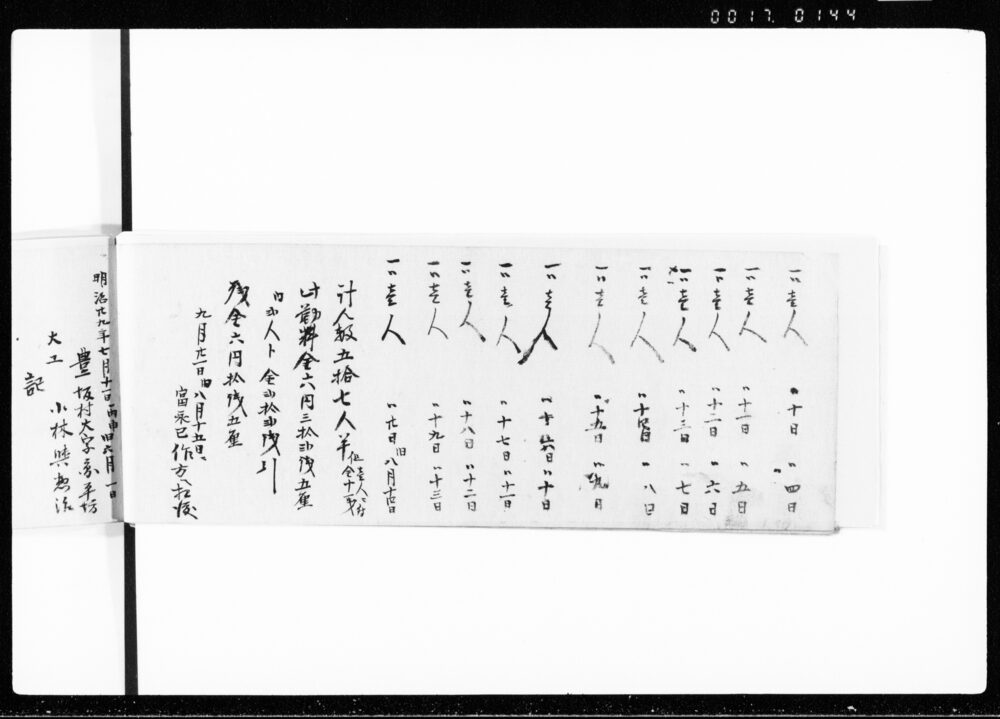 0017 0144
一〃壱人 〃十日 〃四日
一〃壱人 〃十一日 〃五日
一〃壱人 〃十二日 〃六日
一〃壱人 〃十三日 〃七日
一〃壱人 〃十四日 〃八日
一〃壱人 〃十五日 〃九日
一〃壱人 〃十六日 〃十日
一〃壱人 〃十七日 〃十一日
一〃壱人 〃十八日 〃十二日
一〃壱人 〃十九日 〃十三日
一〃壱人 〃廿日 旧八月十四日
計人数五拾七人半 但壱人ニ付金十一銭
此勘料金六円三拾弐銭五厘
内弐人ト金弐拾弐銭引
残金六円拾銭五厘
九月廿一日旧八月十五日
作方払渡
明治廿九年七月十一日丙申旧六月一日
豊坂村大字
大工 小林
記